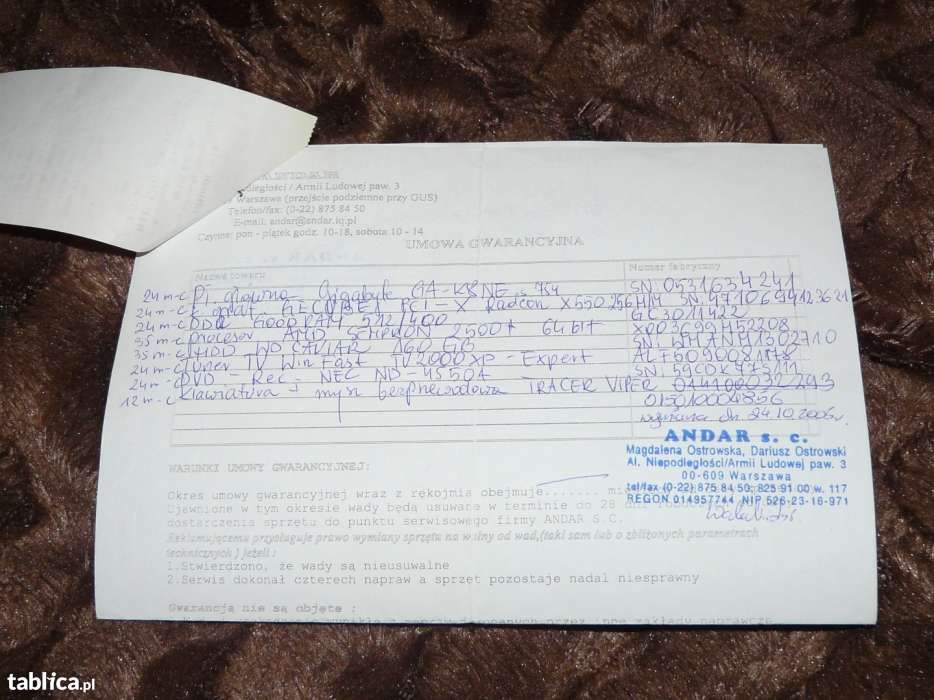 dległości / Armii Ludowej paw. 3
Warszawa (przejście podziemne przy GUS)
Telefon/fax: (0-22) 875 84 50
E-mail: andar@andar.iq.pl
Czynne: pon - piątek godz. 10-18, sobota 10 - 14
UMOWA GWARANCYJNA
Nazwa towaru Numer fabryczny
24 m-c Pł. główna - Gigabyte GA-K8NE SN: 0531634241
24 m-c K. graf. GECUBE PCI-X Radeon X550 256MB SN:
24 m-c DDR GOODRAM 512/400 GC3011422
35 m-c Procesor AMD SEMPRON 2500+ 64bit
35 m-c HDD WD CAVIAR 160 GB SN:
24 m-c Tuner TV WinFast TV2000XP - Expert
24 m-c DVD - Rec - NEC ND-4550A SN:
12 m-c Klawiatura + mysz bezprzewodowa TRACER VIPER
015010004856
wymiana dn. 24.10.2005r.
ANDAR s. c.
Magdalena Ostrowska, Dariusz Ostrowski
Al. Niepodległości/Armii Ludowej paw. 3
00-609 Warszawa
tel/fax (0-22) 875 84 50, 825 91 00 w. 117
REGON 014957744 NIP 526-23-16-971
WARUNKI UMOWY GWARANCYJNEJ:
Okres umowy gwarancyjnej wraz z rękojmią obejmuje.......
Ujawnione w tym okresie wady będą usuwane w terminie do 28 dni
dostarczenia sprzętu do punktu serwisowego firmy ANDAR S.C.
Reklamującemu przysługuje prawo wymiany sprzętu na wolny od wad,(taki sam lub o zbliżonych parametrach
technicznych ) jeżeli :
1.Stwierdzono, że wady są nieusuwalne
2.Serwis dokonał czterech napraw a sprzęt pozostaje nadal niesprawny
Gwarancją nie są objęte :
tablica.pl